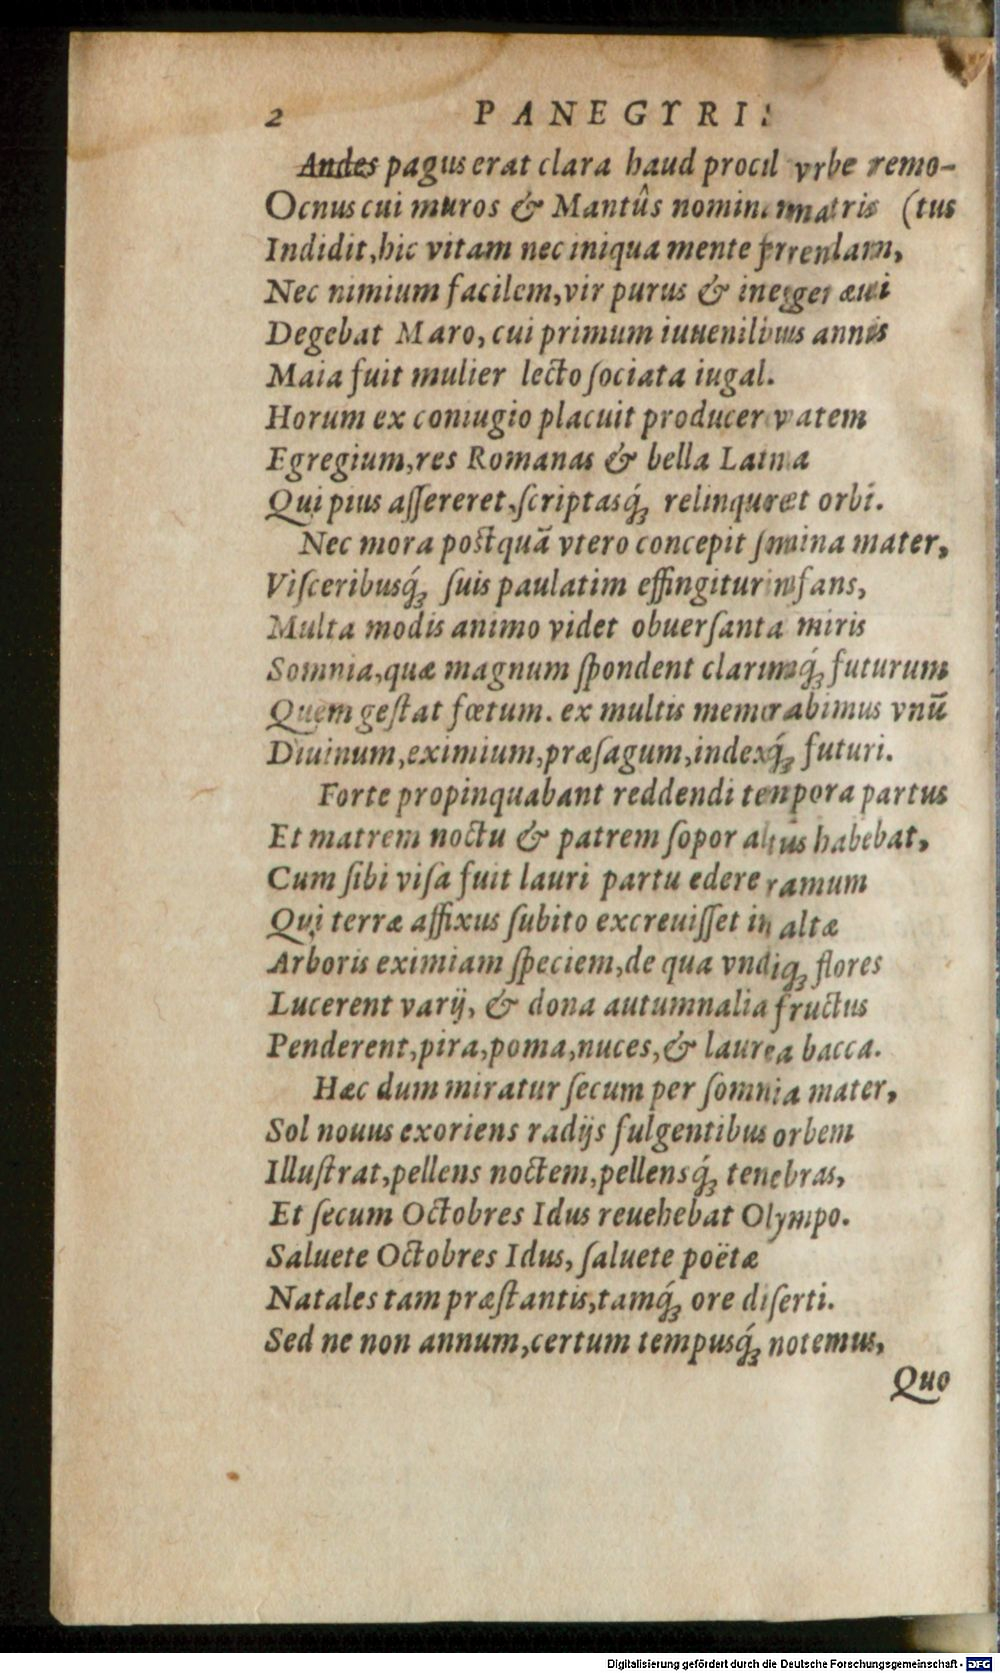 2 PANEGYRI
Andes pagus erat clara haud procul vrbe remo-
Ocnus cui muros & Mantûs matris (tus
Indidit, hic vitam nec iniqua mente
Nec nimium facilem, vir purus & æui
Degebat Maro, cui primum annis
Maia fuit mulier lecto ſociata iugal.
Horum ex coniugio placuit vatem
Egregium, res Romanas & bella
Qui pius aſſereret, ſcriptasq́ꝫ orbi.
Nec mora postquā vtero concepit mater,
Viſceribusq́ꝫ ſuis paulatim effingitur infans,
Multa modis animo videt obuerſanta miris
Somnia, quæ magnum ſpondent futurum
Quem geſtat fœtum. ex multis memorabimus vnū
Diuinum, eximium, præſagum, indexq́ꝫ futuri.
Forte propinquabant reddendi tempora partus
Et matrem noctu & patrem ſopor altus habebat,
Cum ſibi viſa fuit lauri partu edere ramum
Qui terræ affixus ſubito excreuiſſet in altæ
Arboris eximiam ſpeciem, de qua vndiqꝫ flores
Lucerent varij, & dona autumnalia fructus
Penderent, pira, poma, nuces, & laurea bacca.
Hæc dum miratur ſecum per ſomnia mater,
Sol nouus exoriens radijs fulgentibus orbem
Illuſtrat, pellens noctem, pellensq́ꝫ tenebras,
Et ſecum Octobres Idus reuehebat Olympo.
Saluete Octobres Idus, ſaluete poëtæ
Natales tam præſtantis, tamq́ꝫ ore diſerti.
Sed ne non annum, certum tempusq́ꝫ notemus,
Quo
Digitalisierung gefördert durch die Deutsche Forschungsgemeinschaft - DFG